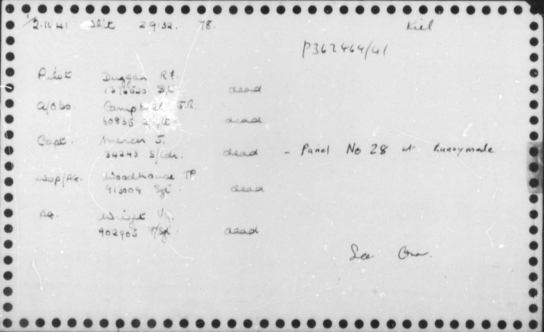 2.11.41 Z9132. 78. Kiel
P362464/41
Pilot Duggan R.J.
Sgt dead
A/Obs Campbell J.R.
30835 dead
Capt. Mercer J.
34243 S/Ldr. dead - Panel No 28 at Runnymede
Wop/AG. Woodhouse TP
912004 Sgt dead
AG. Wright
902903 F/Sgt dead
See Over